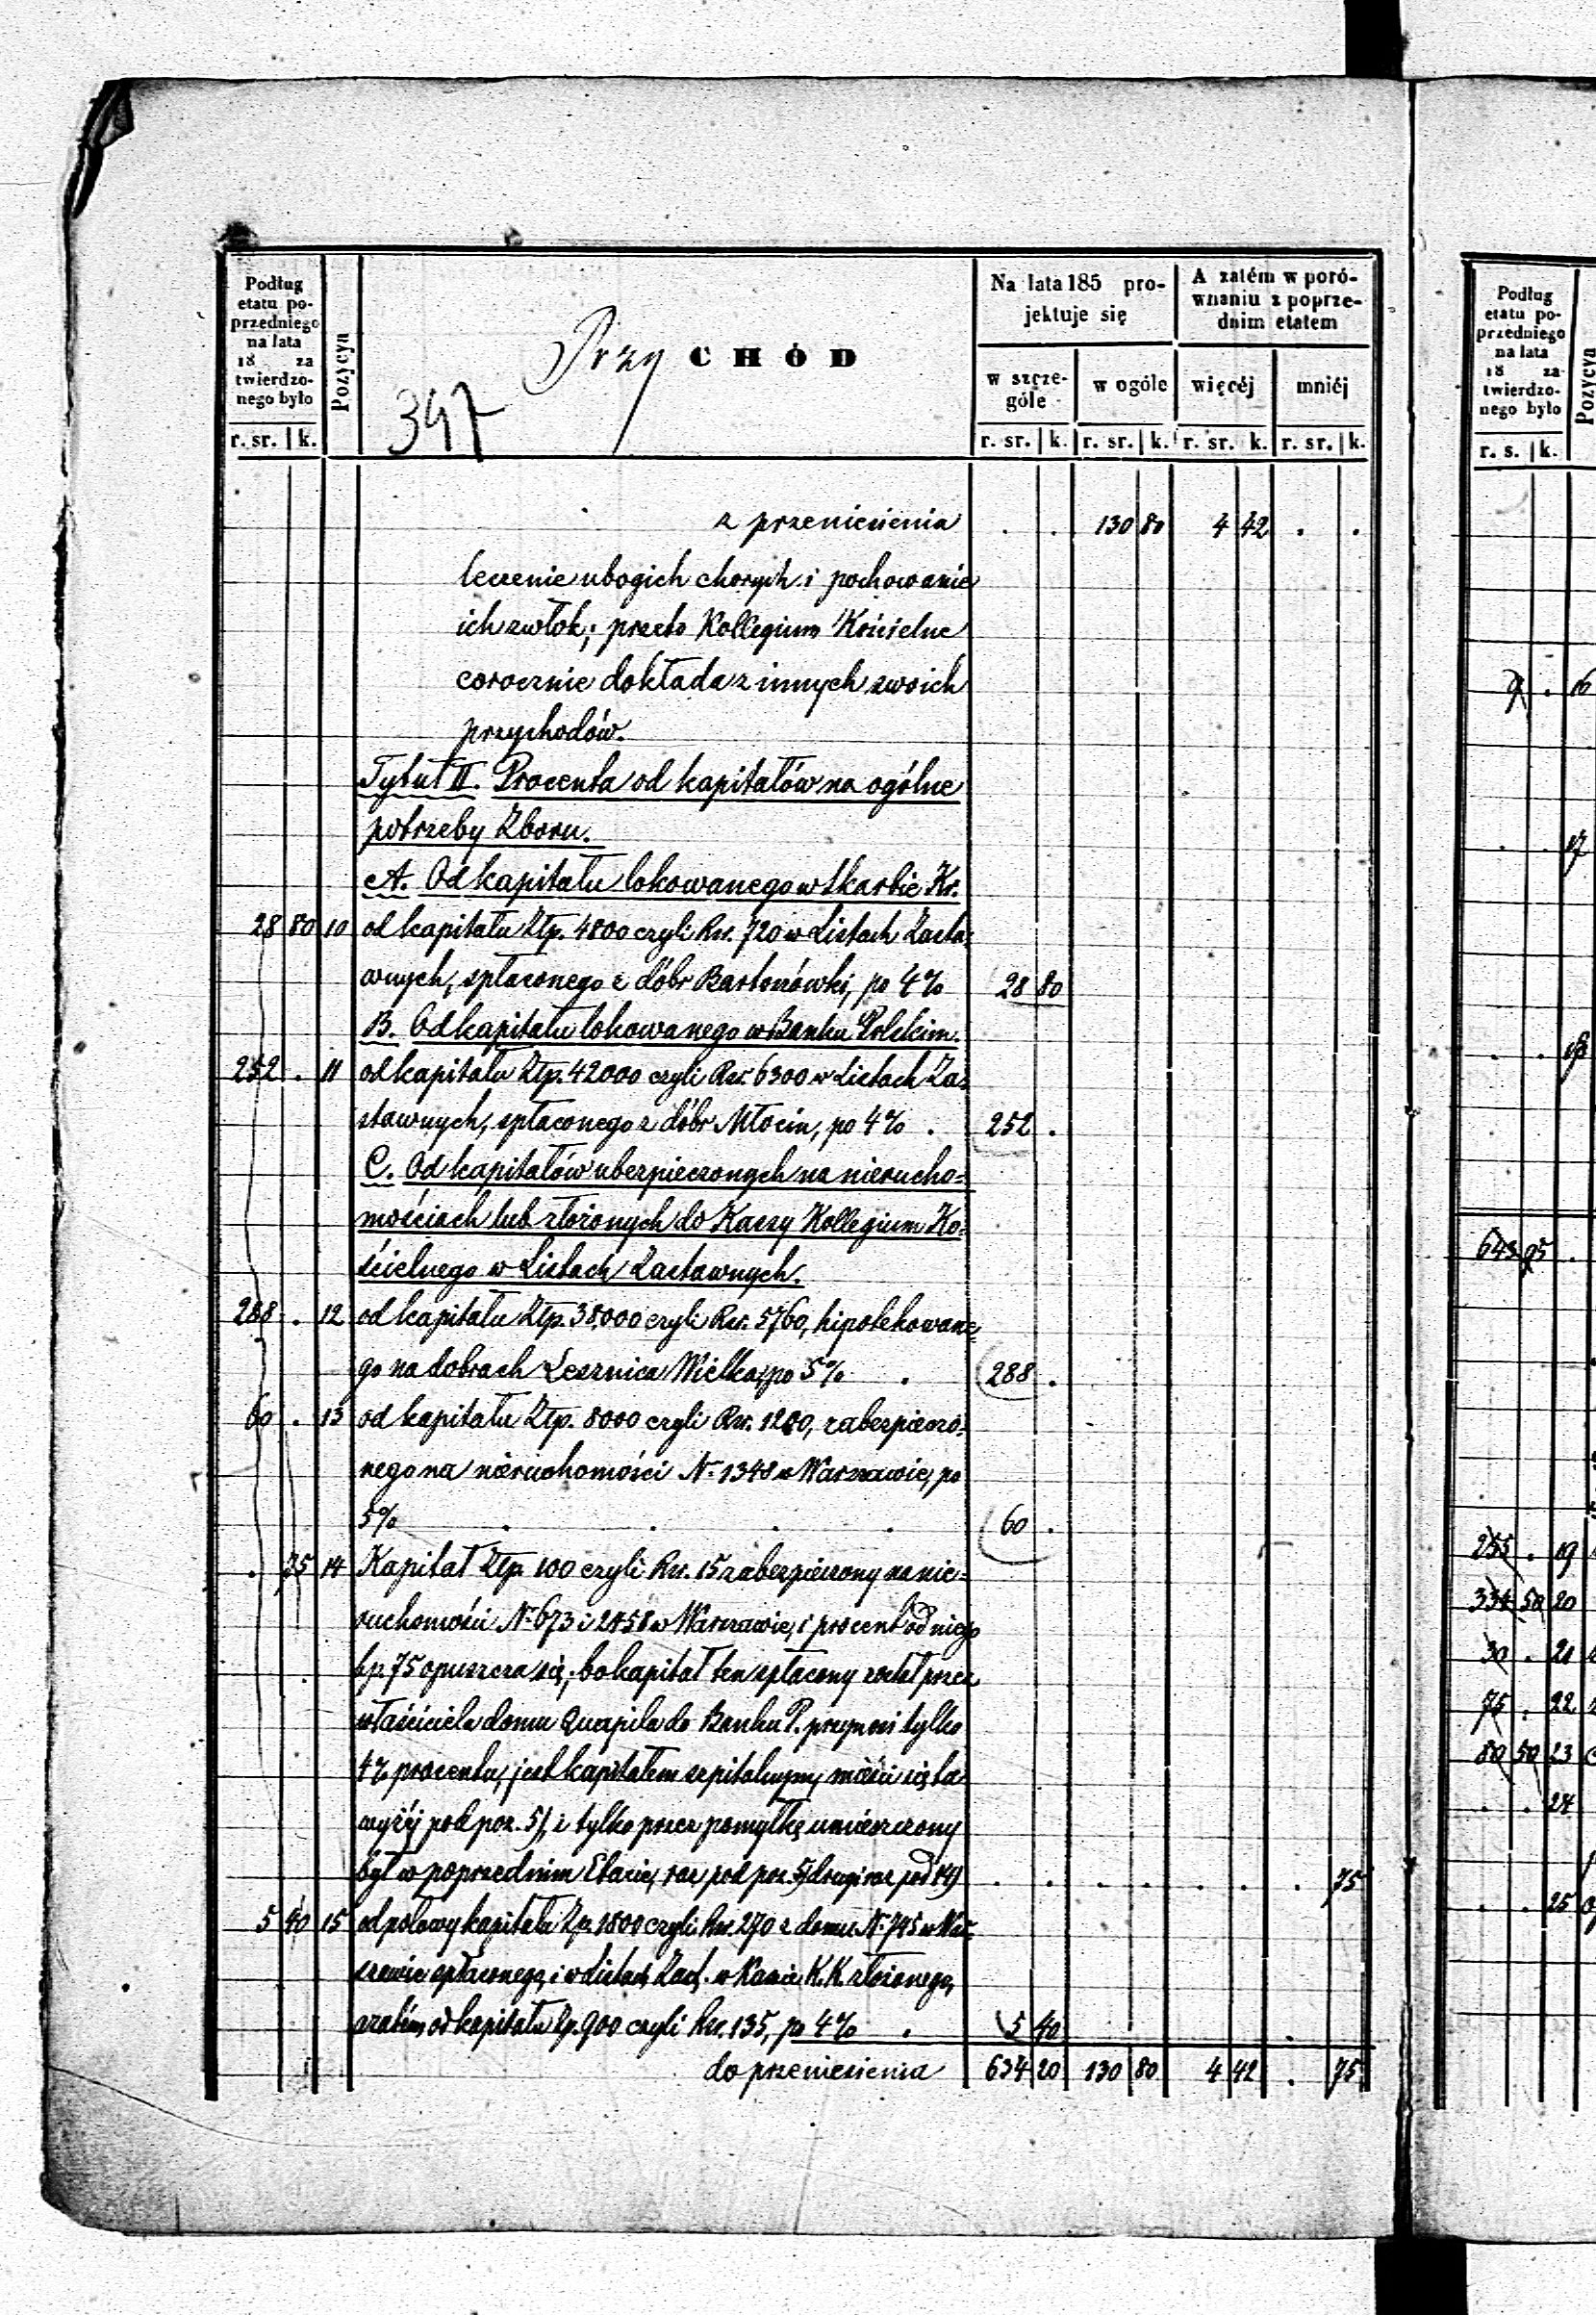 Podług
etatu po-
przedniego
na lata
18 za
twierdzo-
nego było
r. sr. k.
Pozycya
Przy CHÓD
347
Na lata 185 pro-
jektuje się
w szcze-
góle
w ogóle
r. sr. k. r. sr. k.
A zatém w poró-
wnaniu z poprze-
dnim etatem
więcéj mniéj
r. sr. k. r. sr. k.
z przeniesienia . . 130 80 4 42 . .
leczenie ubogich chorych i pochowanie
ich zwłok; przeto Kollegium Kościelne
corocznie dokłada z innych swoich
przychodów.
Tytuł II. Procenta od kapitałów na ogólne
potrzeby Zboru.
A. Od kapitału lokowanego w Skarbie Kr.
28 80 10 od kapitału Złp. 4800 czyli Rsr. 720 w Listach Zasta-
wnych, spłaconego z dóbr Bartoszówki, po 4% 28 80
B. Od kapitału lokowanego w Banku Polskim.
252 . 11 od kapitału Złp. 42000 czyli Rsr. 6300 w Listach Za-
stawnych, spłaconego z dóbr Młocin, po 4% . 252 .
C. Od kapitałów ubezpieczonych na nierucho-
mościach lub złożonych do Kassy Kollegium Ko-
ścielnego w Listach Zastawnych.
288 . 12 od kapitału Złp. 38,000 czyli Rsr. 5760, hipotekowane-
go na dobrach Lesznica Wielka, po 5% . 288 .
60 . 13 od kapitału Złp. 8000 czyli Rsr. 1200, zabezpieczo-
nego na nieruchomości N. 1348 w Warszawie, po
5% . . . . 60 .
. 75 14 Kapitał Złp. 100 czyli Rsr. 15 zabezpieczony na nie-
ruchomości N. 673 i 2458 w Warszawie, i procent od niego
kp. 75 opuszcza się; bo kapitał ten spłacony został przez
właściciela domu Quapila do Banku P. przynosi tylko
4% procenta, jest kapitałem szpitalnym, mieści się ta
wyżéj pod poz. 5), i tylko przez pomyłkę umieszczony
był w poprzednim Etacie, raz pod poz. 5) drugi raz pod 14) . . . . . . . 75
5 40 15 od połowy kapitału Złp. 1800 czyli Rsr. 270 z domu N. 745 w War-
szawie spłaconego, i w Listach Zast. w Kassie K. K. złożonego,
a zatém od kapitału Złp. 900 czyli Rsr. 135, po 4% . 5 40
do przeniesienia 634 20 130 80 4 42 . 75
Podług
etatu po-
przedniego
na lata
18 za-
twierdzo-
nego było
r. s. k.
Pozycya
9 . 16
. . 17
. . 18
643 95 .
255 . 19
334 50 20
30 . 21
75 . 22
80 50 23
. . 24
. . 25